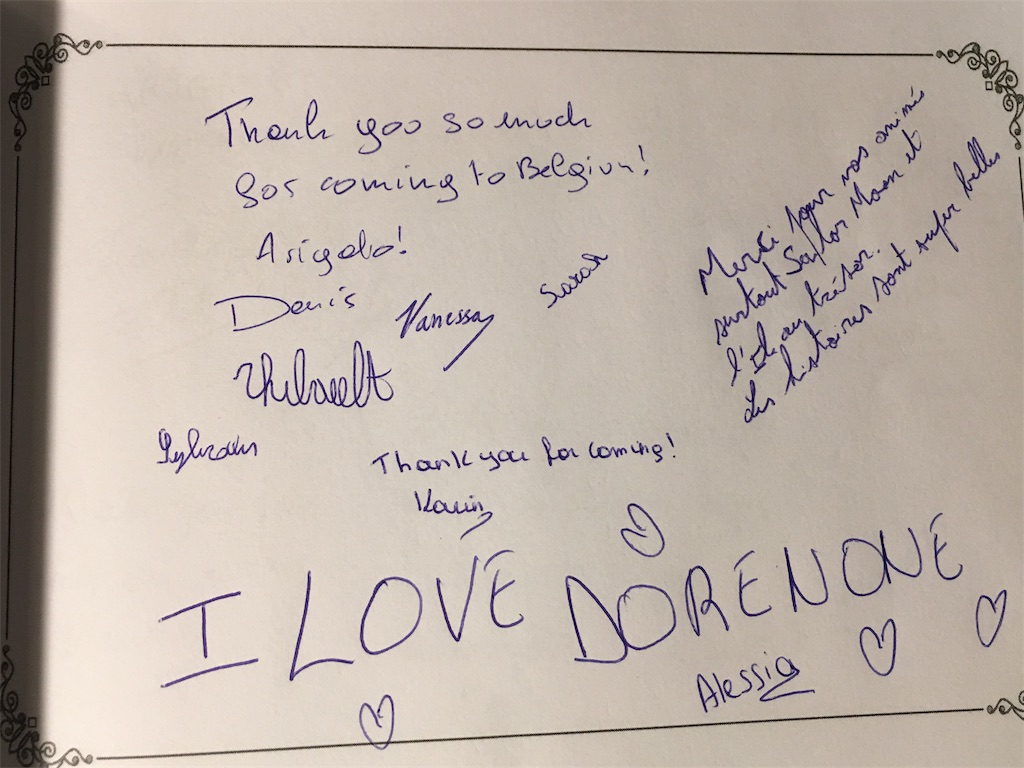 Thank you so much
for coming to Belgium!
Arigato!
Denis
Vanessa
Sarah
Thibault
Merci pour vos animé
surtout Saylor Moon et
l'île au trésor.
Les histoires sont super belles
Thank you for coming!
Karin
I LOVE DORENONE
Alessia